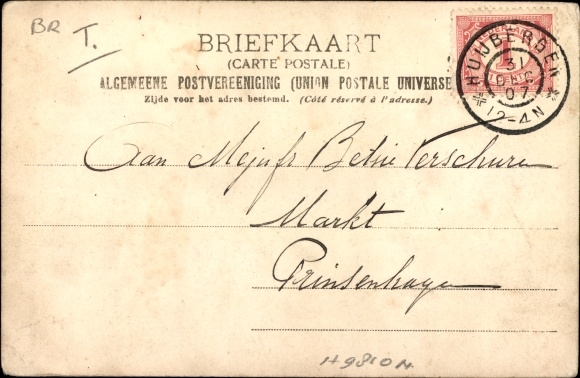 BR
T.
BRIEFKAART
(CARTE POSTALE)
ALGEMEENE POSTVEREENIGING (UNION POSTALE UNIVERSE
Zijde voor het adres bestemd. (Côté réservé à l'adresse.)
HUIJBERGEN
31
DEC
07
12-4N
Aan Mejufr Betsie Verschuren
Markt
Prinsenhage
H9810N